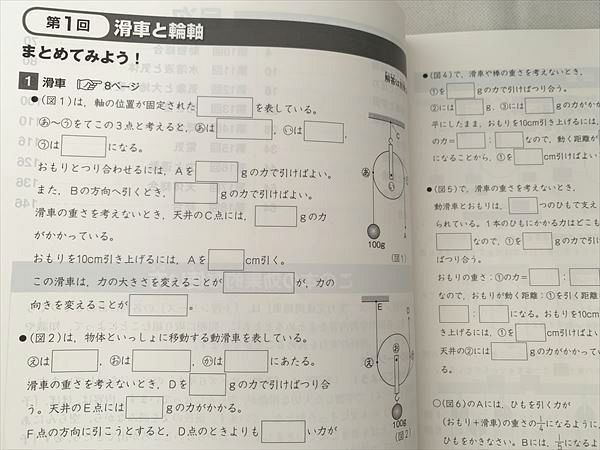 第1回 滑車と輪軸
まとめてみよう!
1 滑車 8ページ
●(図1)は、軸の位置が固定された を表している。
あ～うをてこの3点と考えると、あは 、いは 、
うは になる。
おもりとつり合わせるには、Aを gの力で引けばよい。
また、Bの方向へ引くとき、 gの力で引けばよい。
滑車の重さを考えないとき、天井のC点には、 gの力
がかかっている。
おもりを10cm引き上げるには、Aを cm引く。
この滑車は、力の大きさを変えることが が、力の
向きを変えることが 。
●(図2)は、物体といっしょに移動する動滑車を表している。
えは 、おは 、かは にあたる。
滑車の重さを考えないとき、Dを gの力で引けばつり合
う。天井のE点には gの力がかかる。
F点の方向に引こうとすると、D点のときよりも い力が
C
あ
い
A
100g
(図1)
E
D
え
お
100g
(図2)
●(図4)で、滑車や棒の重さを考えないとき、
①を gの力で引けばつり合う。
②には g、③には gの力がか
平にしたまま、おもりを10cm引き上げるには、
の力= : なので、動く距離が
になることから、①を cm引けばよい
●(図5)で、滑車の重さを考えないとき、
動滑車とおもりは、 つのひもで支え
られている。1本のひもにかかる力はどこも
なので、①を gの力で引けば
ばつり合う。
おもりの重さ:①の力= :
なので、おもりが動く距離:①を引く距離
: になる。おもりを10cm
き上げるには、①を cm引けば
天井の②には gの力がかかって
る。
○(図6)のAには、ひもを引く力が
(おもり+滑車)の重さの1/2になるように、
ひもをかきなさい。Bには、